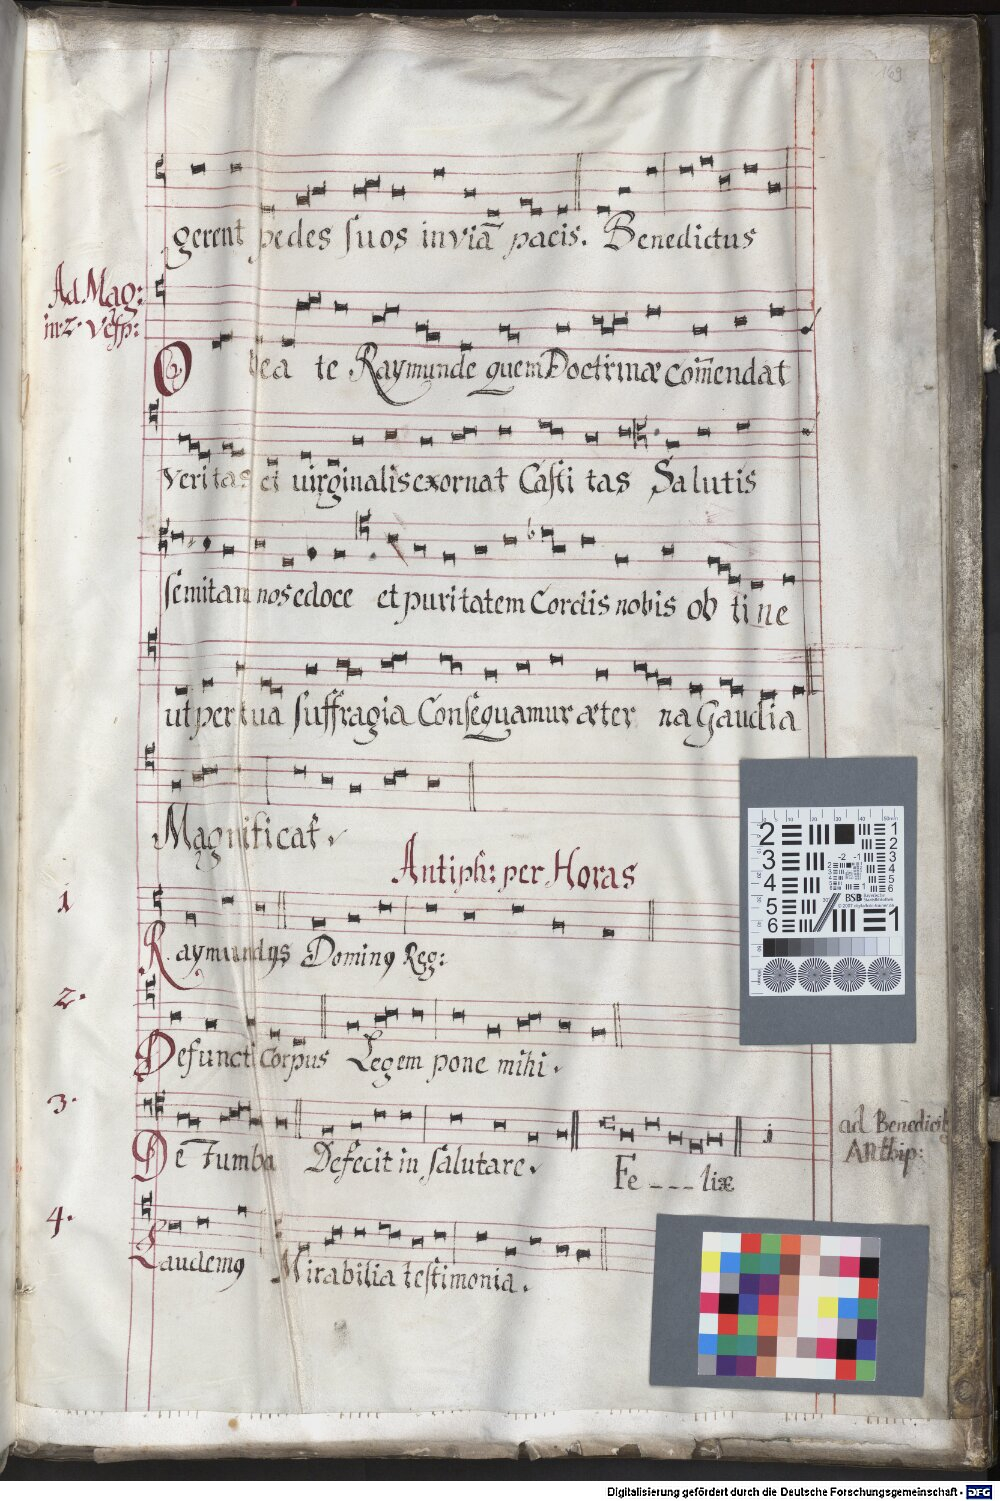 169
gerent pedes suos in viā pacis. Benedictus
Ad. Mag:
in 2. Vesp:
O Bea te Raymunde quem Doctrinæ com̄endat
Veritas et uirginalis exornat Casti tas Salutis
semitam nos edoce et puritatem Cordis nobis ob ti ne
ut per tua suffragia Consequamur æter na Gaudia
Magnificat.
Antiph: per Horas
1
Raymundus Dominꝰ Reg:
2.
Defuncti Corpus Legem pone mihi.
3.
De Tumba Defecit in salutare. Fe _ _ _ liæ
ad Benedicit
Anthip:
4.
Laudemꝰ Mirabilia testimonia.
Digitalisierung gefördert durch die Deutsche Forschungsgemeinschaft - DFG